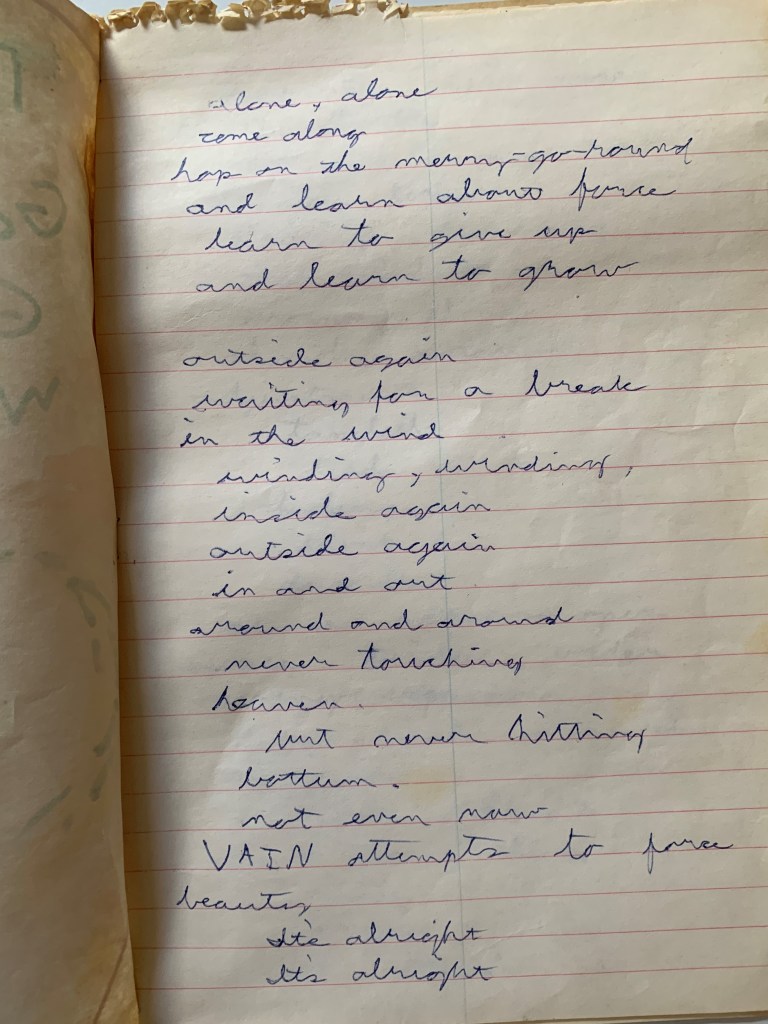 alone, alone
come along
hop on the merry-go-round
and learn about force
learn to give up
and learn to grow
outside again
waiting for a break
in the wind
winding, winding,
inside again
outside again
in and out
around and around
never touching
heaven.
just never hitting
bottum.
not even now
VAIN attempts to force
beauty
It's alright
It's alright